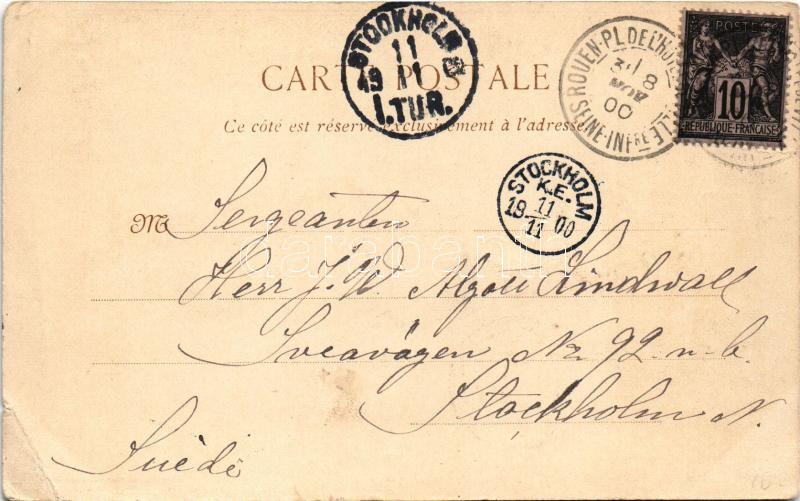 STOCKHOLM
11
19 11
1.TUR.
ROUEN-PL. DE L'HOTEL
8
NOV
00
SEINE-INFRE
POSTE
10
REPUBLIQUE-FRANCAISE
CARTE POSTALE
Ce côté est réservé exclusivement à l'adresse.
STOCKHOLM
K.E.
11
19 00
11
M Sergeanten
Herr J. W. Lindwall
Sveavägen No 92. n. b.
Stockholm N.
Suède
darabanth